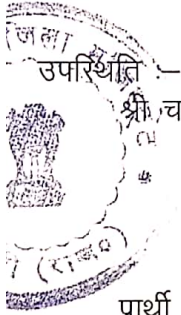 जिला
उपस्थिति :–
श्री च
(राज०)
प्रार्थी